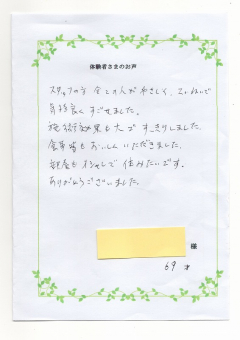 体験者さまのお声
スタッフの方 全ての人がやさしく、ていねいで
気持良く すごせました。
施術効果も大で すっきりしました。
食事等もおいしくいただきました。
部屋もオシャレで 住みたいです。
ありがとうございました。
様
69 才